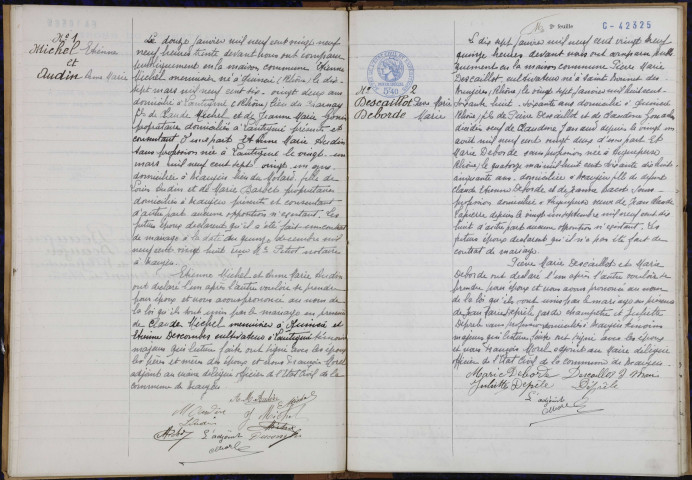 No 1
Michel Etienne
et
Audin Anne Marie
Le douze janvier mil neuf cent vingt neuf
neuf heures trente devant nous ont comparu
publiquement en la maison commune Etienne
Michel menuisier, né à Quincié (Rhône) le dix
sept mars mil neuf cent six, vingt deux ans
domicilié à Lantignié (Rhône) lieu du
fils de Claude Michel et de Jeanne Marie
propriétaire domiciliés à Lantignié présents et
consentant D'une part Et Anne Marie Audin
sans profession née à Lantignié le vingt un
mars mil neuf cent sept, vingt un ans
domiciliée à Beaujeu lieu des fille de
Louis Audin et de Marie Barbet propriétaires
domiciliés à Beaujeu présents et consentant
d'autre part aucune opposition n'existant. Les
futurs époux déclarent qu'il a été fait un contrat
de mariage à la date du quinze décembre mil
neuf cent vingt huit reçu Me notaire
à Beaujeu.
Etienne Michel et Anne Marie Audin
ont déclaré l'un après l'autre vouloir se prendre
pour époux et nous avons prononcé au nom de
la loi qu'ils sont unis par le mariage en présence
de Claude Michel menuisier à Quincié et
Etienne Descombes cultivateur à Lantignié témoins
majeurs qui lecture faite ont signé avec les époux
les père et mère des époux et nous François Gorel
adjoint au maire délégué officier de l'Etat Civil de la
commune de Beaujeu
A M Audin
Michel
Audin
J Michel
Michel
L'adjoint
2e feuille
C-42325
No 2
Descaillot Pierre Marie
Deborde Marie
Le dix sept janvier mil neuf cent vingt neuf
quinze heures devant nous ont comparu publi
quement en la maison commune Pierre Marie
Descaillot, cultivateur né à Saint Bonnet des
Bruyères (Rhône) le vingt sept janvier mil huit cent
soixante huit, soixante ans domicilié à
Rhône, fils de Pierre Descaillot et de Claudine
décédés veuf de Claudine depuis le vingt un
août mil neuf cent vingt deux d'une part Et
Marie Deborde sans profession née à
Rhône, le quatorze mai mil huit cent soixante dix huit
cinquante ans, domiciliée à Beaujeu fille de défunt
Claude Etienne Deborde et de Jeanne sans
profession domiciliée à veuve de Jean Claude
Laperre depuis le vingt un septembre mil neuf cent dix
huit d'autre part aucune opposition n'existant. Les
futurs époux déclarent qu'il n'a pas été fait de
contrat de mariage.
Pierre Marie Descaillot et Marie
Deborde ont déclaré l'un après l'autre vouloir se
prendre pour époux et nous avons prononcé au nom
de la loi qu'ils sont unis par le mariage en présence
de Jean Marie garde champêtre et Juliette
sans profession domiciliés à Beaujeu témoins
majeurs qui lecture faite ont signé avec les époux
et nous François Gorel adjoint au maire délégué
officier de l'Etat Civil de la commune de Beaujeu.
Marie Deborde Descaillot P Marie
Juliette
L'adjoint